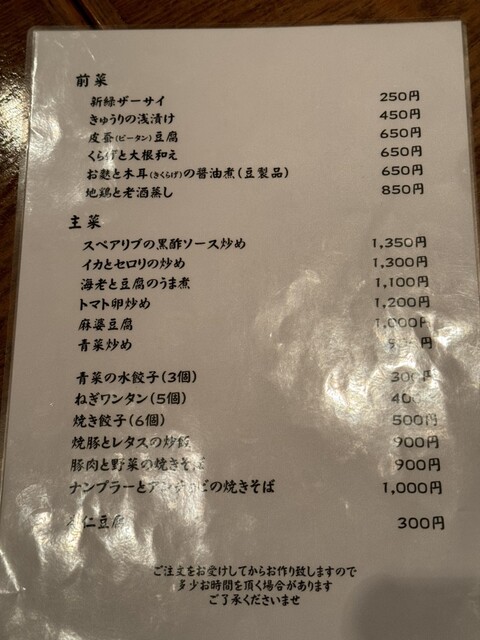 前菜
新緑ザーサイ 250円
きゅうりの浅漬け 450円
皮蛋(ピータン)豆腐 650円
くらげと大根和え 650円
お麩と木耳(きくらげ)の醤油煮(豆製品) 650円
地鶏と老酒蒸し 850円
主菜
スペアリブの黒酢ソース炒め 1,350円
イカとセロリの炒め 1,300円
海老と豆腐のうま煮 1,100円
トマト卵炒め 1,200円
麻婆豆腐 1,000円
青菜炒め
青菜の水餃子(3個) 300円
ねぎワンタン(5個) 400
焼き餃子(6個) 500円
焼豚とレタスの炒飯 900円
豚肉と野菜の焼きそば 900円
ナンプラーと の焼きそば 1,000円
仁豆腐 300円
ご注文をお受けしてからお作り致しますので
多少お時間を頂く場合があります
ご了承くださいませ